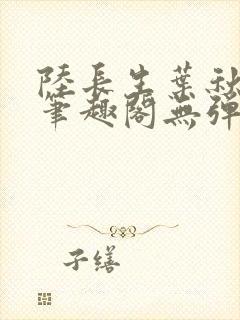 陸長生葉秋
筆趣閣無彈
子繕